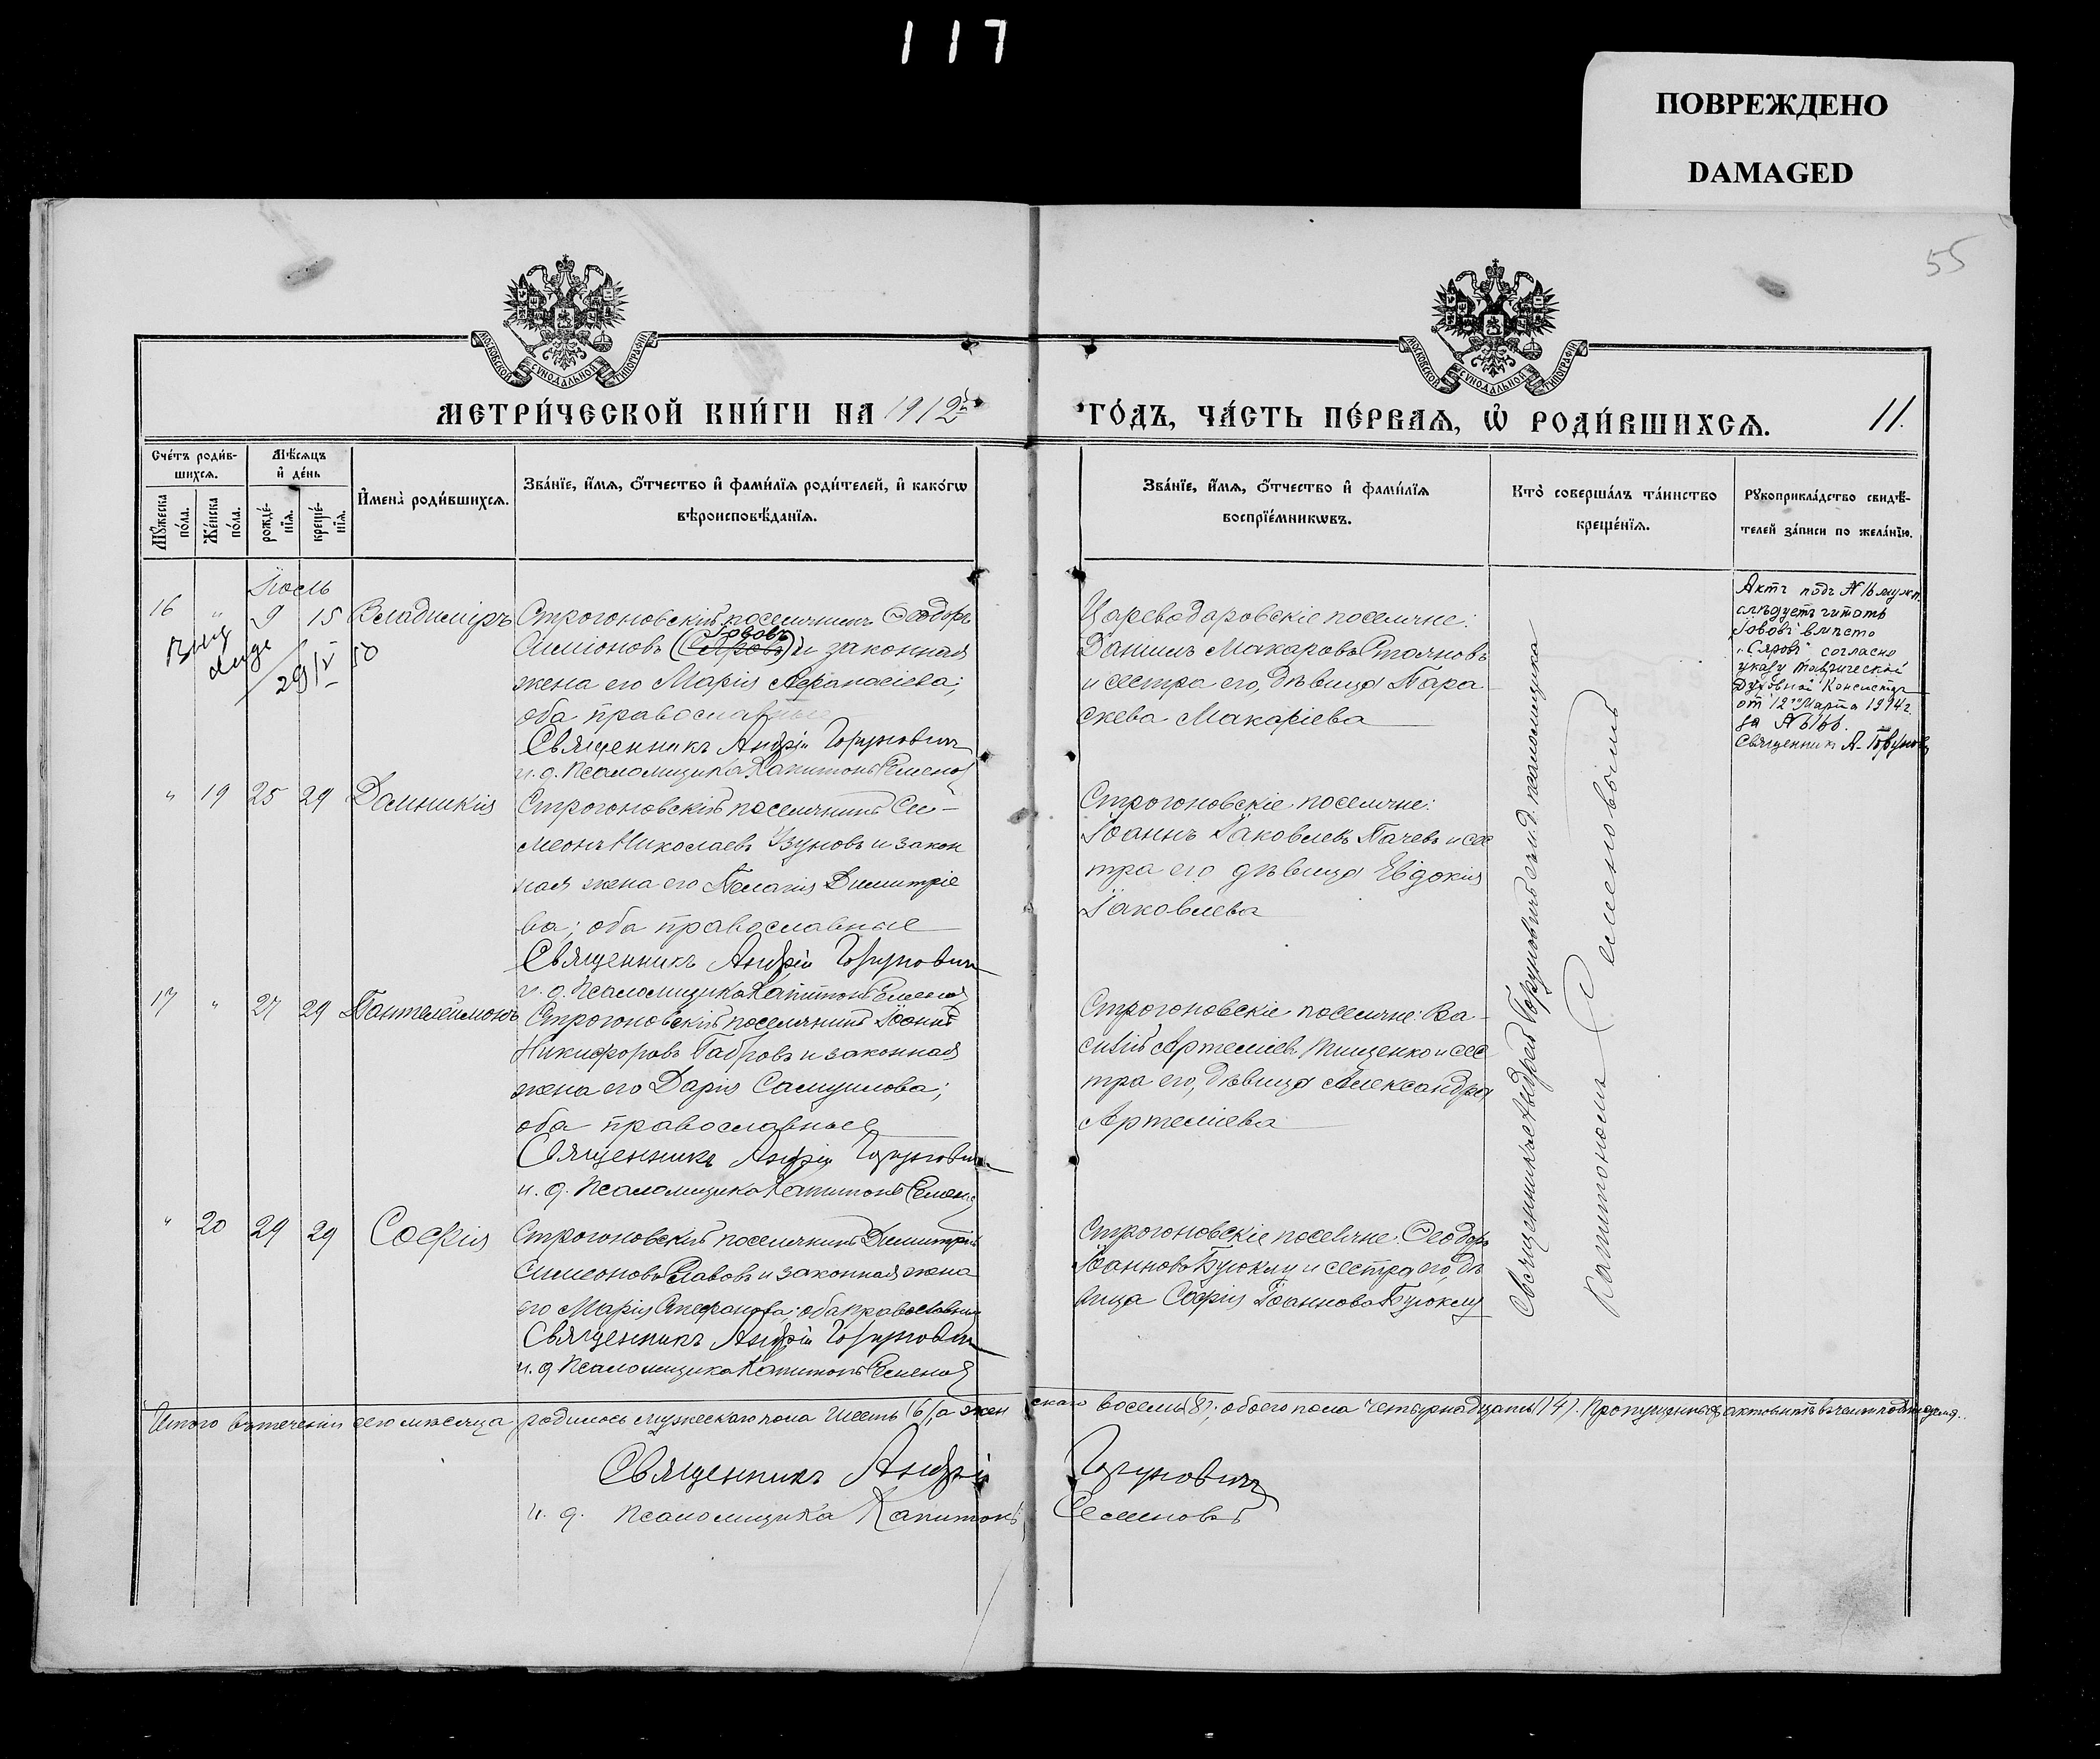 117
ПОВРЕЖДЕНО
DAMAGED
55
МОСКОВСКОЙ СѴНОДАЛЬНОЙ ТИПОГРАФІИ
МОСКОВСКОЙ СѴНОДАЛЬНОЙ ТИПОГРАФІИ
МЕТРИ́ЧЕСКОЙ КНИ́ГИ НА 1912й
ГО́ДЪ, ЧА́СТЬ ПЕ́РВАѦ, Ѡ҆ РОДИ́ВШИХСѦ.
11.
Сче́тъ роди́в-
шихсѧ.
Мѣ́сѧцъ
и҆ де́нь
Мꙋ́жеска
по́ла.
Же́нска
по́ла.
рожде́-
нїѧ.
креще́-
нїѧ.
И҆мена̀ роди́вшихсѧ.
Зва́нїе, и҆́мѧ, ѻ҆́тчество и҆ фами́лїѧ роди́телей, и҆ како́гѡ
вѣроисповѣ́данїѧ.
Зва́нїе, и҆́мѧ, ѻ҆́тчество и҆ фами́лїѧ
воспрїе́мникѡвъ.
Кто̀ соверша́лъ та́инство
креще́нїѧ.
Рꙋкоприкла́дство свидѣ́-
телей за́писи по жела́нїю.
Іюль
16 " 9 15 Владиміръ
29/V 50
Строгоновскій поселянинъ Ѳеодоръ
Іововъ
Симіоновъ (Сяровъ) и законная
жена его Марія Афанасіева;
оба православные
Священникъ Андрій Горунович
и. д. Псаломщика Капитонъ Семенов
Цареводаровскіе поселяне:
Даніилъ Макаровъ Стояновъ
и сестра его, дѣвица Пара-
скева Макаріева
Актъ подъ № 16 муж. п.
слѣдуетъ читать
"Іововъ" вмѣсто
"Сяровъ" согласно
указу Таврической
Духовной Консистор
от 12го Марта 1914 г.
за №
Священникъ А.
" 19 25 29 Домникія
Строгоновскій поселянинъ Си-
меонъ Николаевъ Узуновъ и закон
ная жена его Пелагія Димитріе
ва; оба православные
Священникъ Андрій Горунович
и. д. Псаломщика Капитонъ Семенов
Строгоновскіе поселяне:
Іоаннъ Іаковлевъ Пачевъ и сес
тра его дѣвица Евдокія
Іаковлева
17 " 27 29 Пантелеимонъ
Строгоновскій поселянинъ Іоаннъ
Никифоровъ Габровъ и законная
жена его Дарія Самуилова;
оба православные
Священникъ Андрій Горунович
и. д. Псаломщика Капитонъ Семенов
Строгоновскіе поселяне: Ва-
силій Артеміевъ Тищенко и сес
тра его, дѣвица Александра
Артеміева
" 20 29 29 Софія
Строгоновскій поселянинъ Димитрій
Симеоновъ Славовъ и законная жена
его Марія Стефанова; оба православные
Священникъ Андрій Горунович
и. д. Псаломщика Капитонъ Семенов
Строгоновскіе поселяне: Ѳеодоръ
Іоанновъ Буюкли и сестра его, дѣ
вица Софія Іоаннова Буюкли
Священникъ Андрей Горуновичъ съ и. д. псаломщика
Капитономъ Семеновымъ
Итого втеченіи сего мѣсяца родилось мужескаго пола шесть (6), а жен
скаго восемь (8), обоего пола четырнадцать (14). Пропущенныхъ актовъ нѣтъ
Священникъ Андрій Горунович
и. д. псаломщика Капитонъ Семеновъ